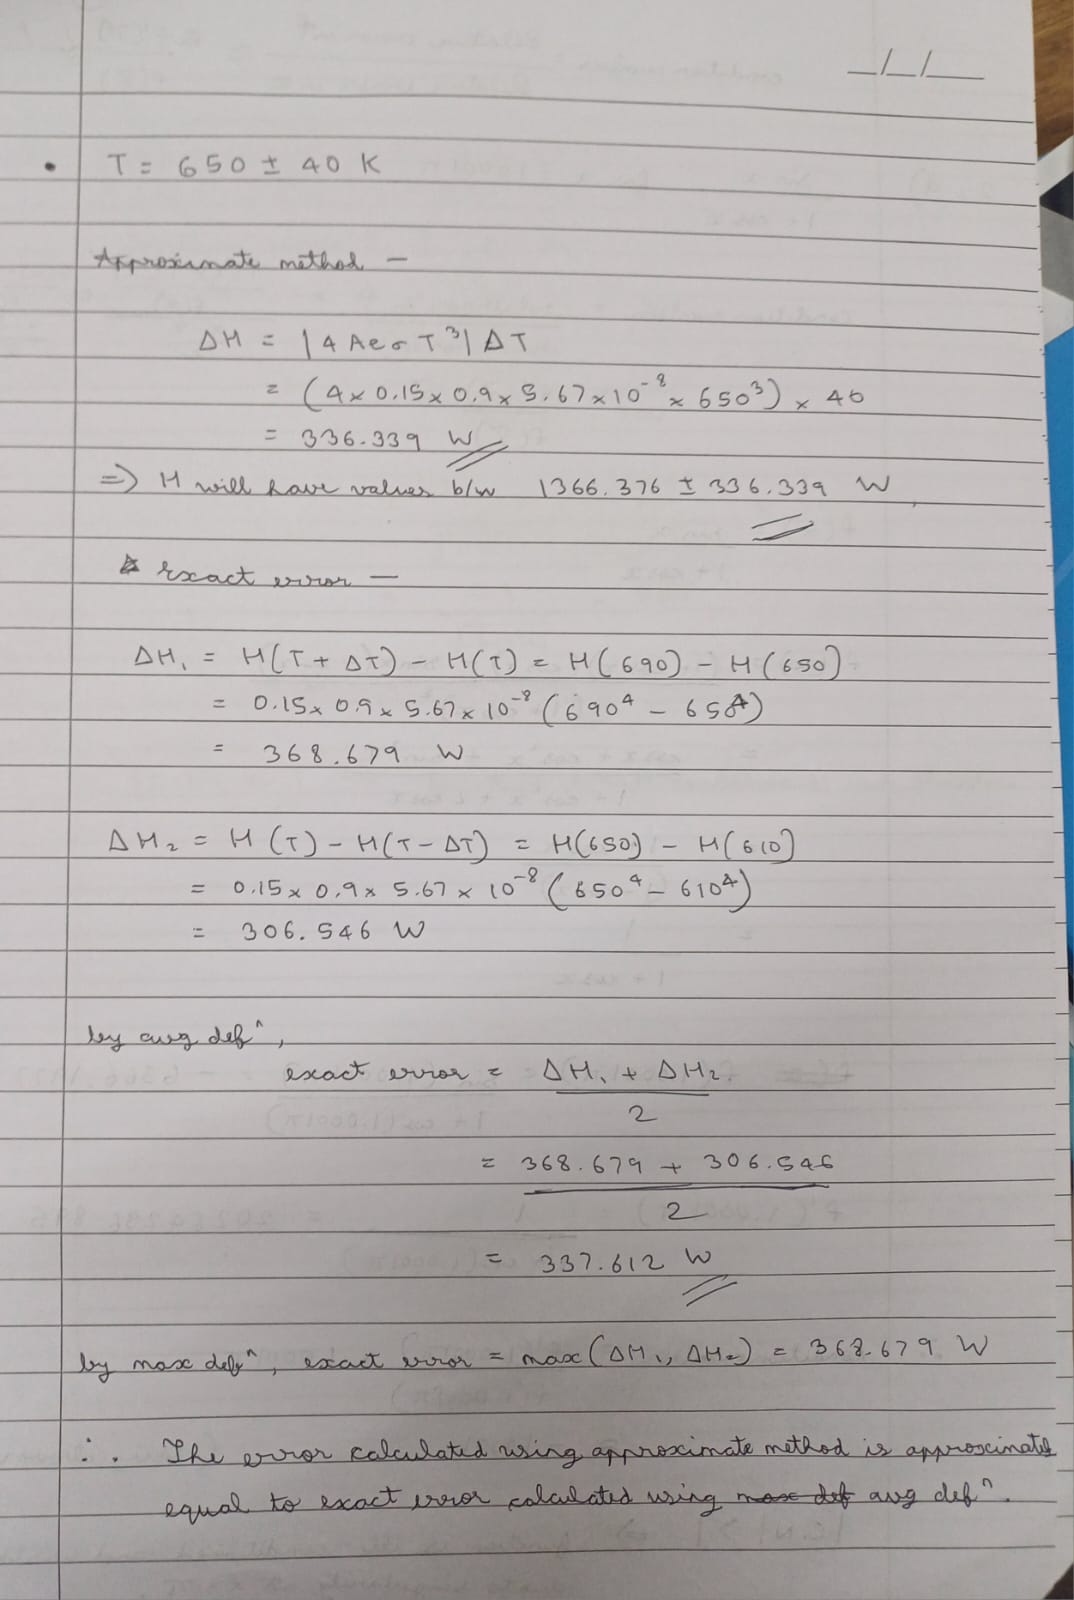 _/_/__
• T = 650 ± 40 K
Approximate method –
ΔH = |4 Aeσ T³| ΔT
= (4 × 0.15 × 0.9 × 5.67 × 10⁻⁸ × 650³) × 40
= 336.339 W
⇒ H will have values b/w 1366.376 ± 336.339 W
exact error –
ΔH₁ = H(T + ΔT) – H(T) = H(690) – H(650)
= 0.15 × 0.9 × 5.67 × 10⁻⁸ (690⁴ – 650⁴)
= 368.679 W
ΔH₂ = H(T) – H(T – ΔT) = H(650) – H(610)
= 0.15 × 0.9 × 5.67 × 10⁻⁸ (650⁴ – 610⁴)
= 306.546 W
by avg defⁿ,
exact error = ΔH₁ + ΔH₂
2
= 368.679 + 306.546
2
= 337.612 W
by max defⁿ, exact error = max(ΔH₁, ΔH₂) = 368.679 W
∴ The error calculated using approximate method is approximately
equal to exact error calculated using max def avg defⁿ.